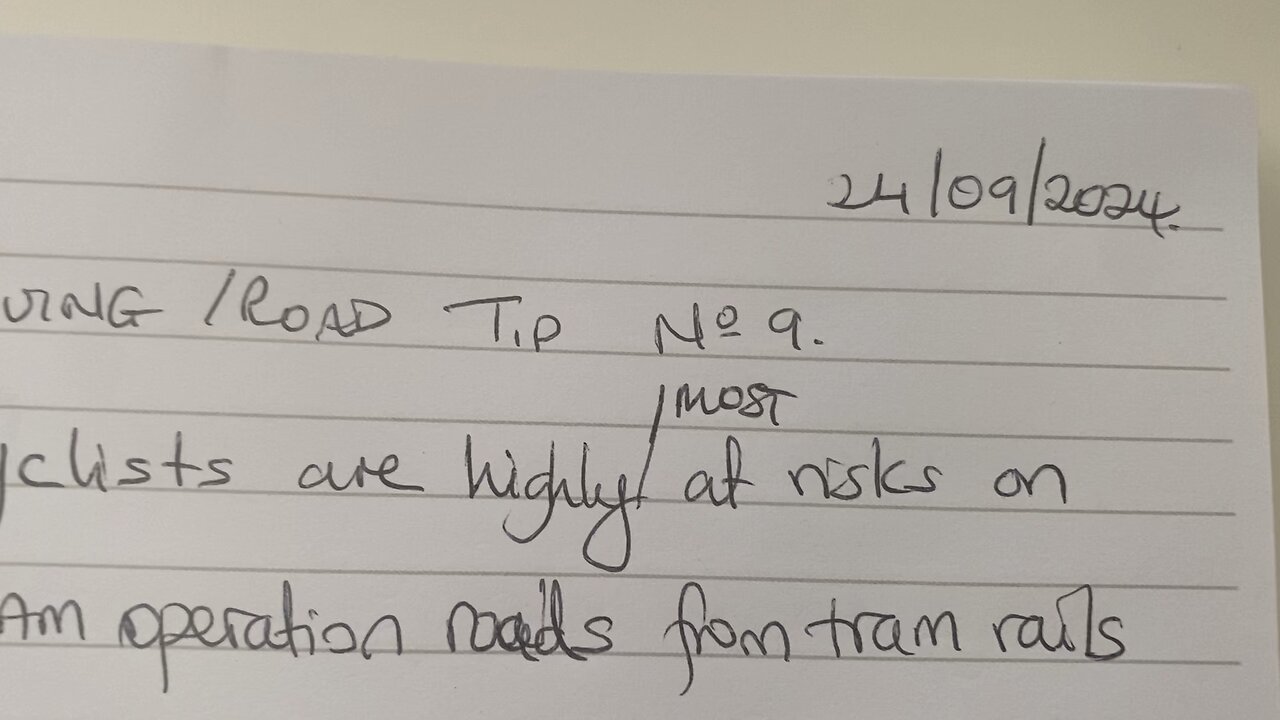 24/09/2024.
VING /ROAD TIP Nº 9.
/MOST
yclists are highly at risks on
Am operation roads from tram rails